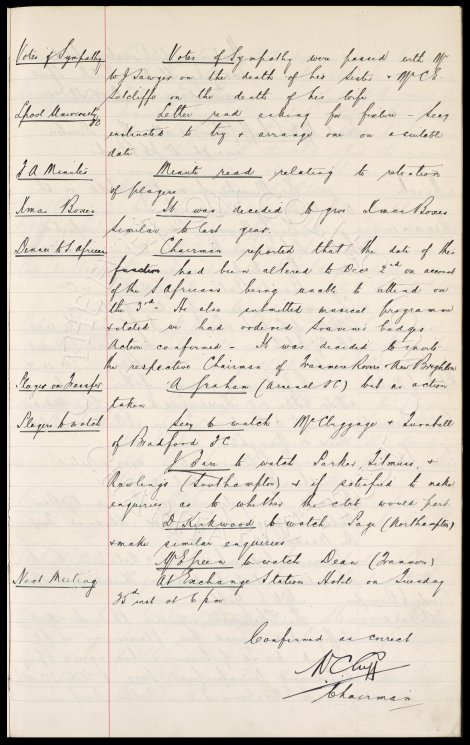 Votes of Sympathy Votes of Sympathy were passed with Mr
W J Sawyer on the death of his Sister & Mr C E
Sutcliffe on the death of his wife
Lpool University Letter read asking for fixture - Secy
instructed to try & arrange one on a suitable
date
F A Minutes Minute read relating to retention
of players
Xmas Boxes It was decided to give Xmas Boxes
similar to last year.
Dinner to S. Africans Chairman reported that the date of this
function had been altered to Decr 2nd on account
of the S Africans being unable to attend on
the 3rd. He also submitted musical programme
& stated we had ordered souvenir badges.
Action confirmed - It was decided to invite
the respective Chairman of Tranmere Rovers & New Brighton
Players on Transfer A Graham (Arsenal FC) but no action
taken
Players to watch Secy to watch McCluggage & Turnbull
of Bradford FC
J Fare to watch Parker, Titmuss, &
Rawlings (Southampton) & if satisfied to make
enquiries as to whether the club would part
D. Kirkwood to watch Page (Northampton)
& make similar enquiries
Mr E Green to watch Dean (Tranmere)
Next Meeting At Exchange Station Hotel on Tuesday
25th inst at 6 pm
Confirmed as correct
W C Cuff
Chairman